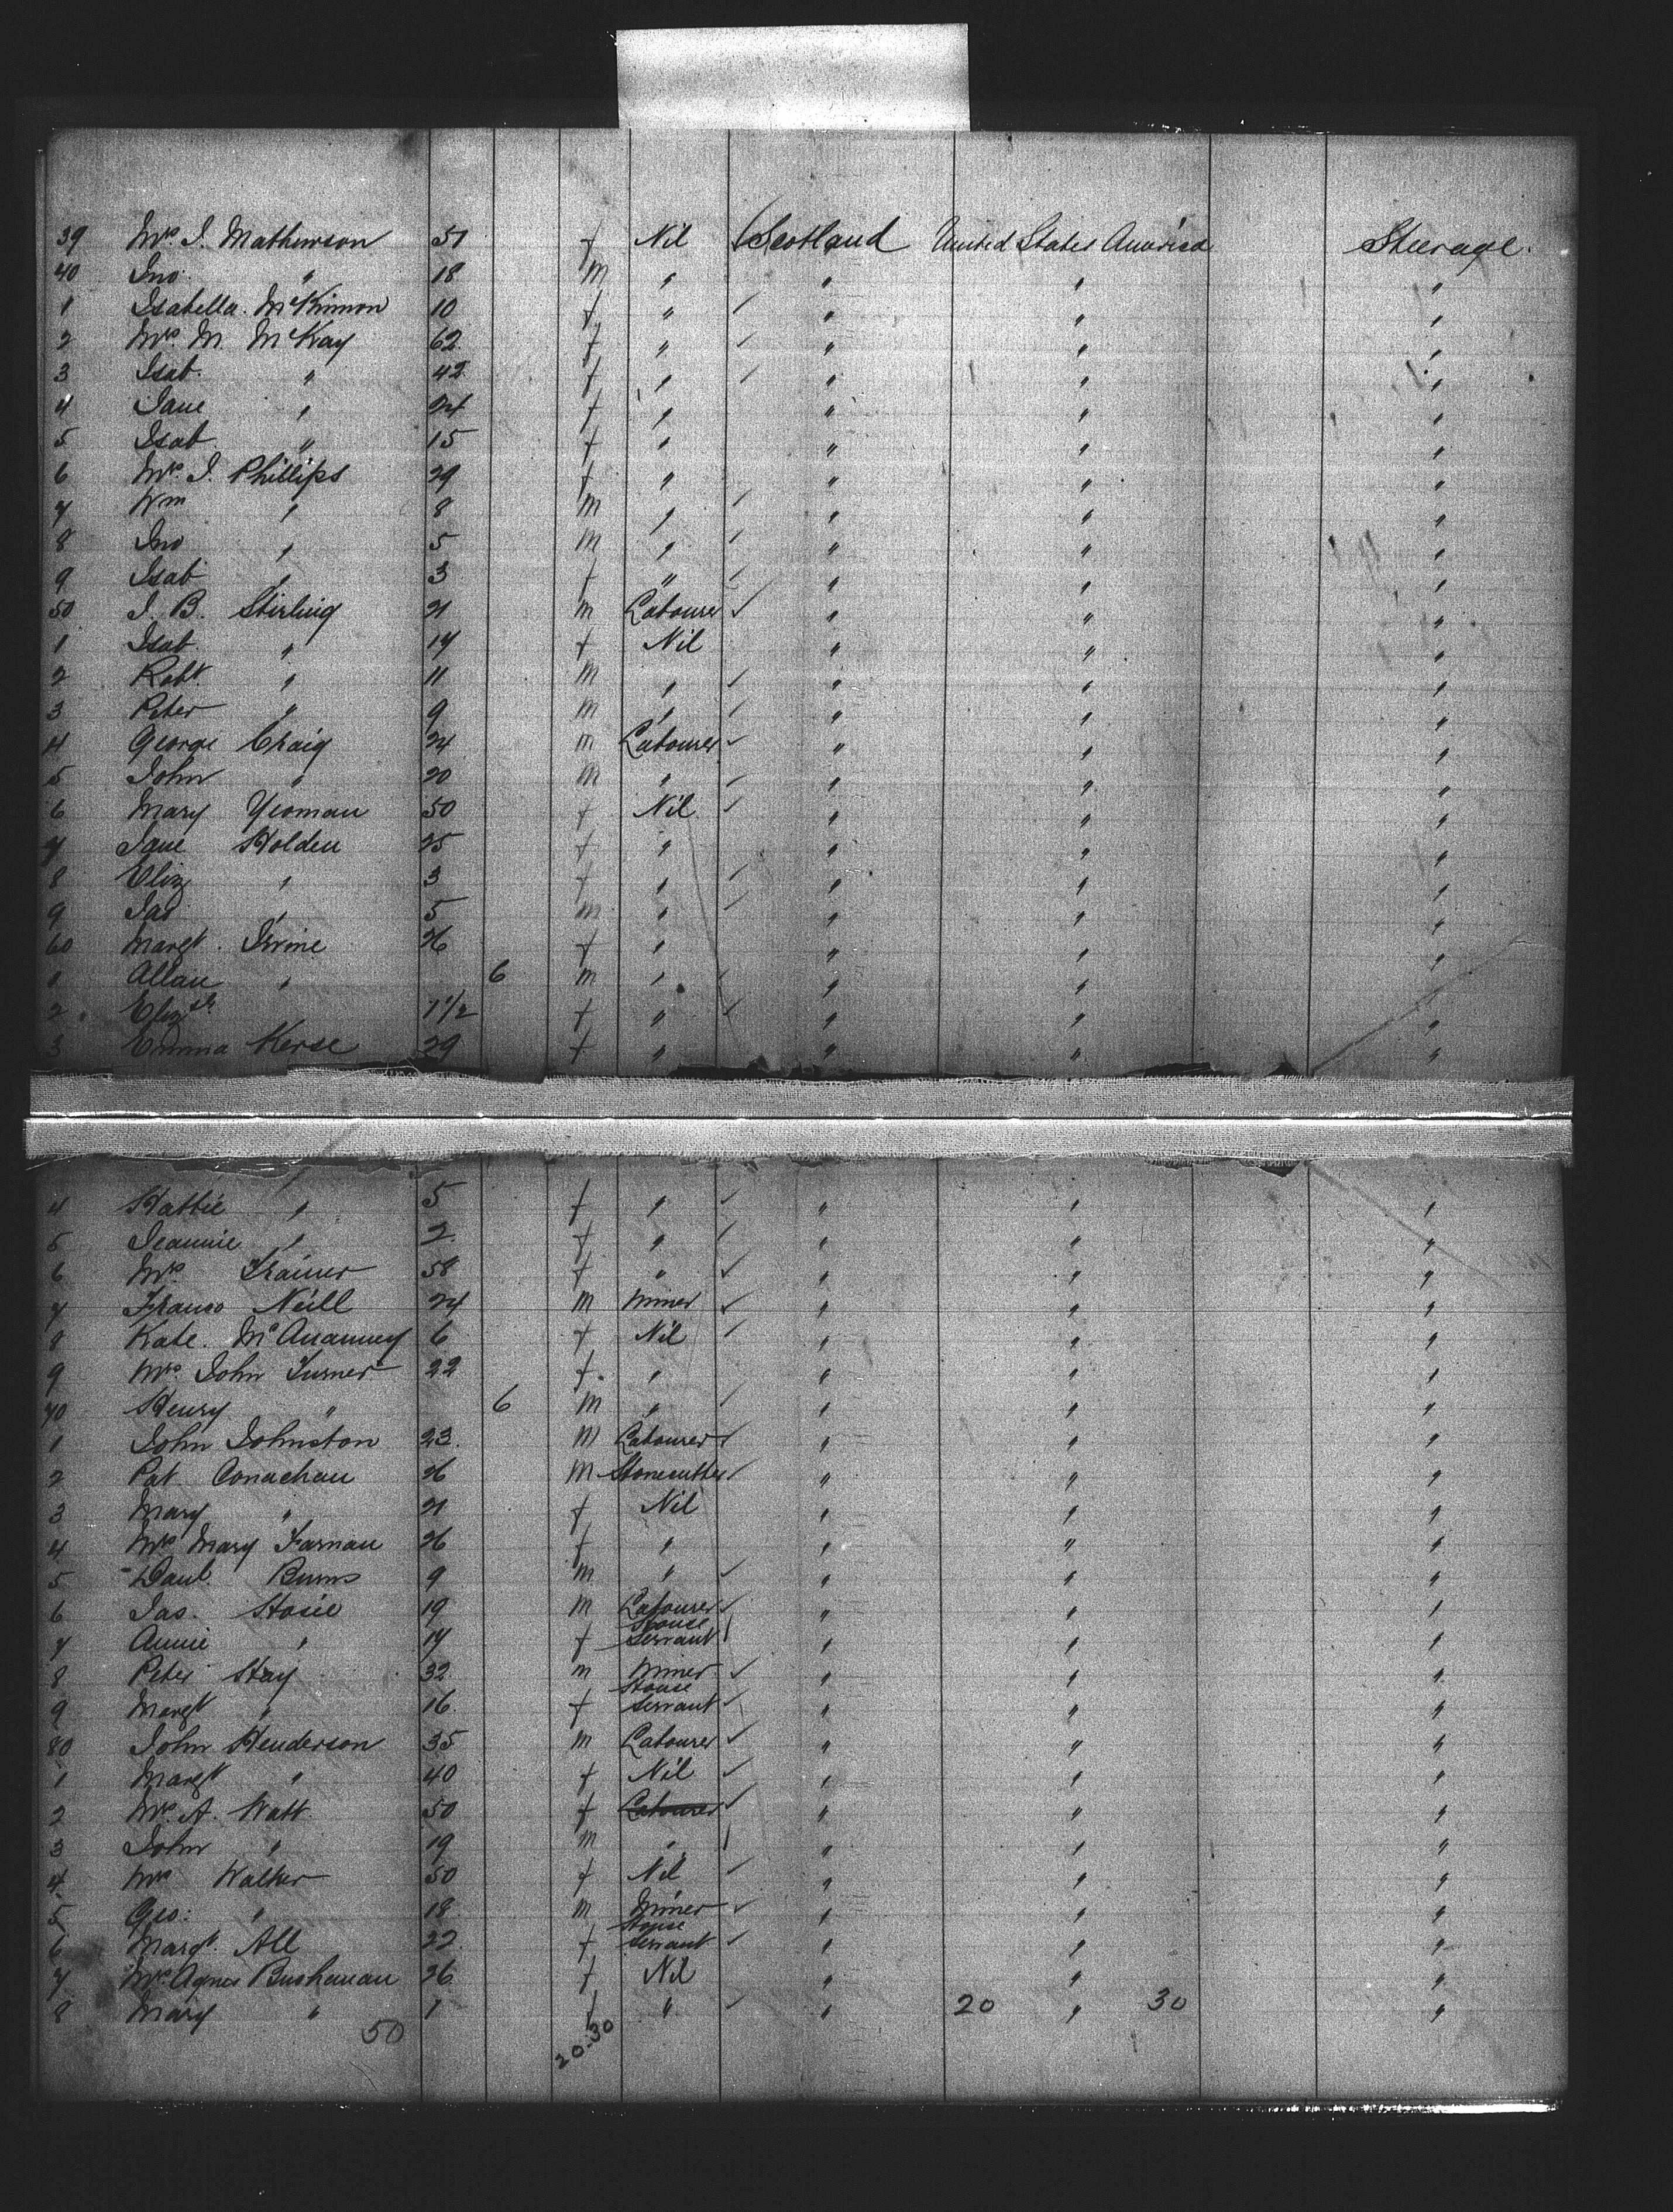 39 Mrs. J. Mathewson 51 f Nil Scotland United States America Steerage.
40 Jno. " 18 m " " " "
1 Isabella McKinnon 10 f " " " "
2 Mrs. M. McKay 62 f " " " "
3 Isab. " 42 f " " " "
4 Jane " 24 f " " " "
5 Isab. " 15 f " " " "
6 Mrs. J. Phillips 29 f " " " "
7 Wm " 8 m " " " "
8 Jno " 5 m " " " "
9 Isab " 3 f " " " "
50 J. B. Stirling 21 m Labourer " " "
1 Isab. " 17 f Nil " " "
2 Robt. " 11 m " " " "
3 Peter " 9 m " " " "
4 George Craig 24 m Labourer " " "
5 John " 20 m " " " "
6 Mary Yeoman 50 f Nil " " "
7 Jane Holden 25 f " " " "
8 Eliz " 3 f " " " "
9 Jas " 5 m " " " "
60 Margt. Irvine 26 f " " " "
1 Allan " 6 m " " " "
2 Elizth 1 1/2 f " " " "
3 Emma Kerse 29 f " " " "
4 Hattie " 5 f " " " "
5 Jeannie " 2 f " " " "
6 Mrs. Trainer 58 f " " " "
7 Francs Neill 24 m Miner " " "
8 Kate McAnanney 6 f Nil " " "
9 Mrs. John Turner 22 f " " " "
70 Henry " 6 m " " " "
1 John Johnston 23 m Labourer " " "
2 Pat Conachan 26 m Stonecutter " " "
3 Mary " 21 f Nil " " "
4 Mrs Mary Farnan 26 f " " " "
5 Danl. Burns 9 m " " " "
6 Jas. Hosie 19 m Labourer " " "
7 Annie " 17 f House Servant " " "
8 Peter Hay 32 m Miner " " "
9 Margt " 16 f House Servant " " "
80 John Henderson 35 m Labourer " " "
1 Margt " 40 f Nil " " "
2 Mrs. A. Watt 50 f Labourer " " "
3 John " 19 m " " " "
4 Mrs Walker 50 f Nil " " "
5 Geo: " 18 m Miner " " "
6 Margt. All 22 f House Servant " " "
7 Mrs. Agnes Buchanan 26 f Nil " " "
8 Mary " 1 f " " 20 " 30 "
50 20.30